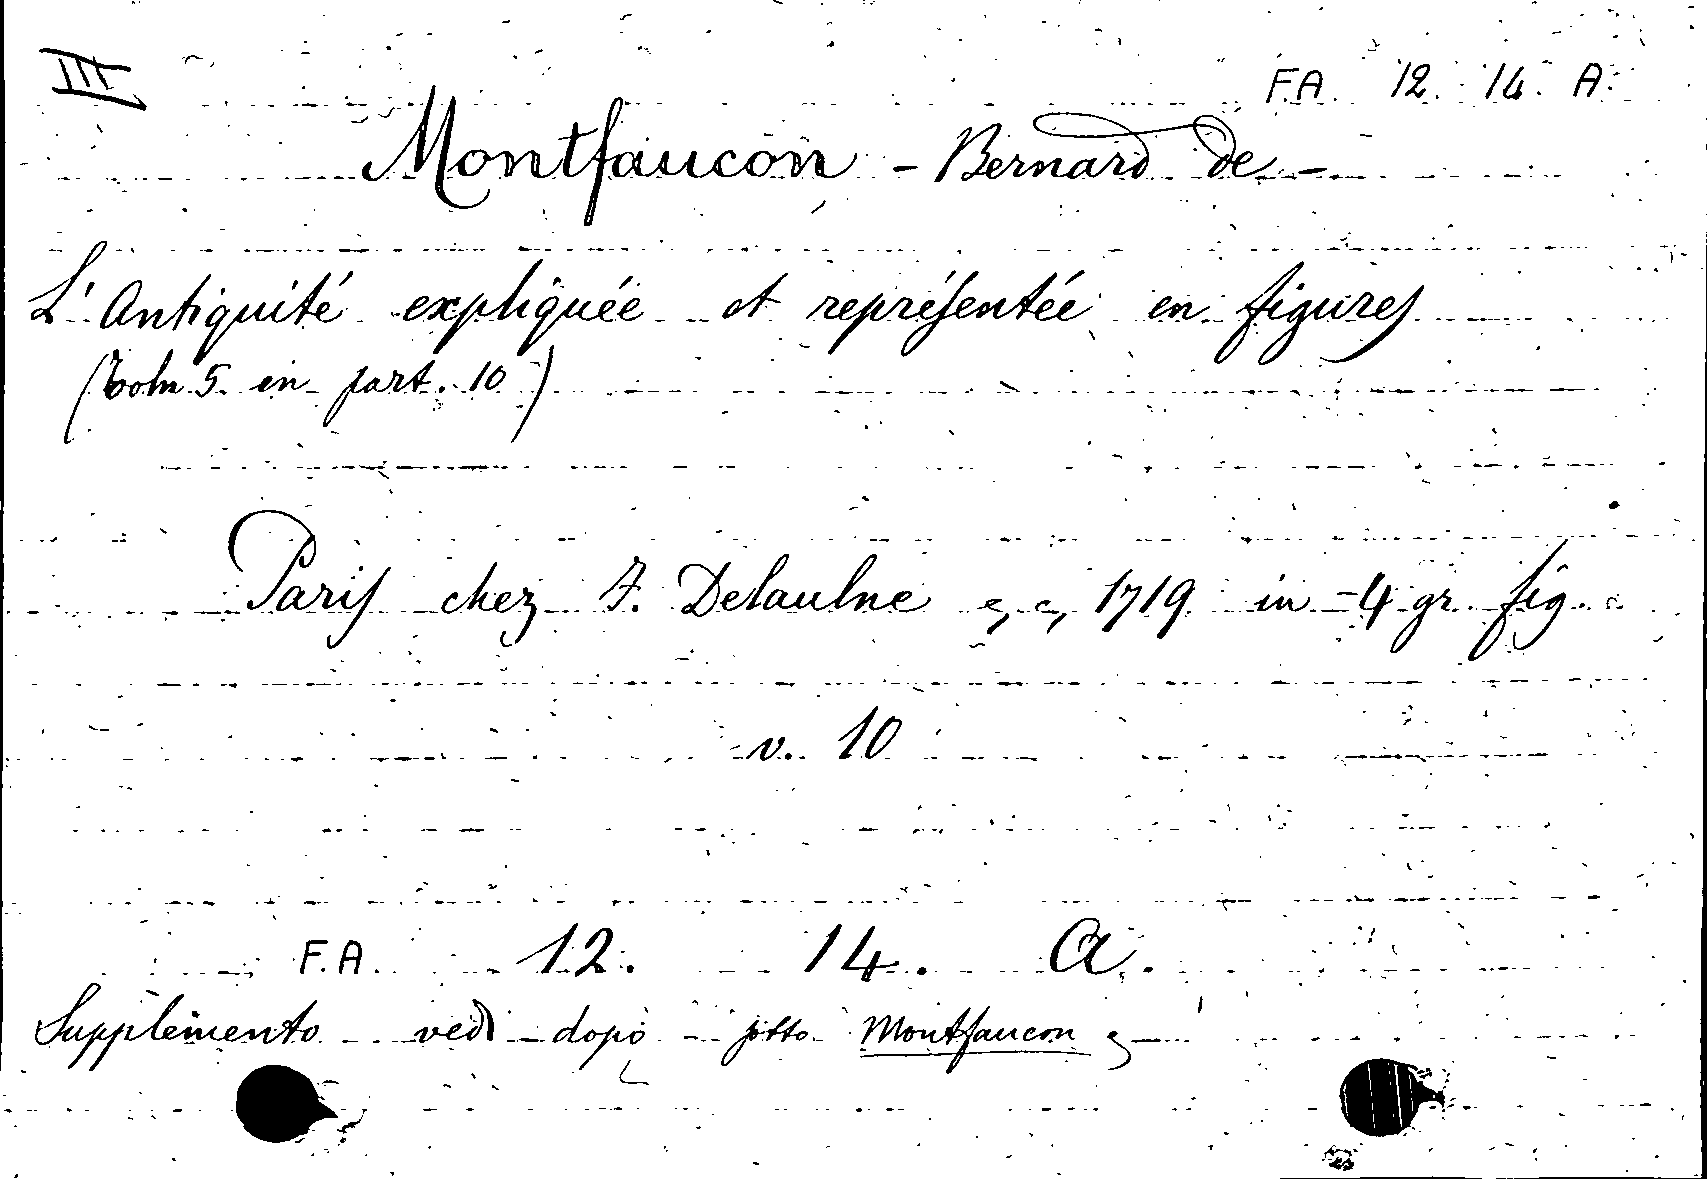 III
F.A. 12. 14. A.
Montfaucon - Bernard de -
L'Antiquité expliquée et représentée en figures
(Tom 5. en part. 10)
Paris chez F. Delaulne 1719 in-4 gr. fig.
v. 10
F.A. 12. 14. A.
Supplemento vedi dopo sotto Montfaucon